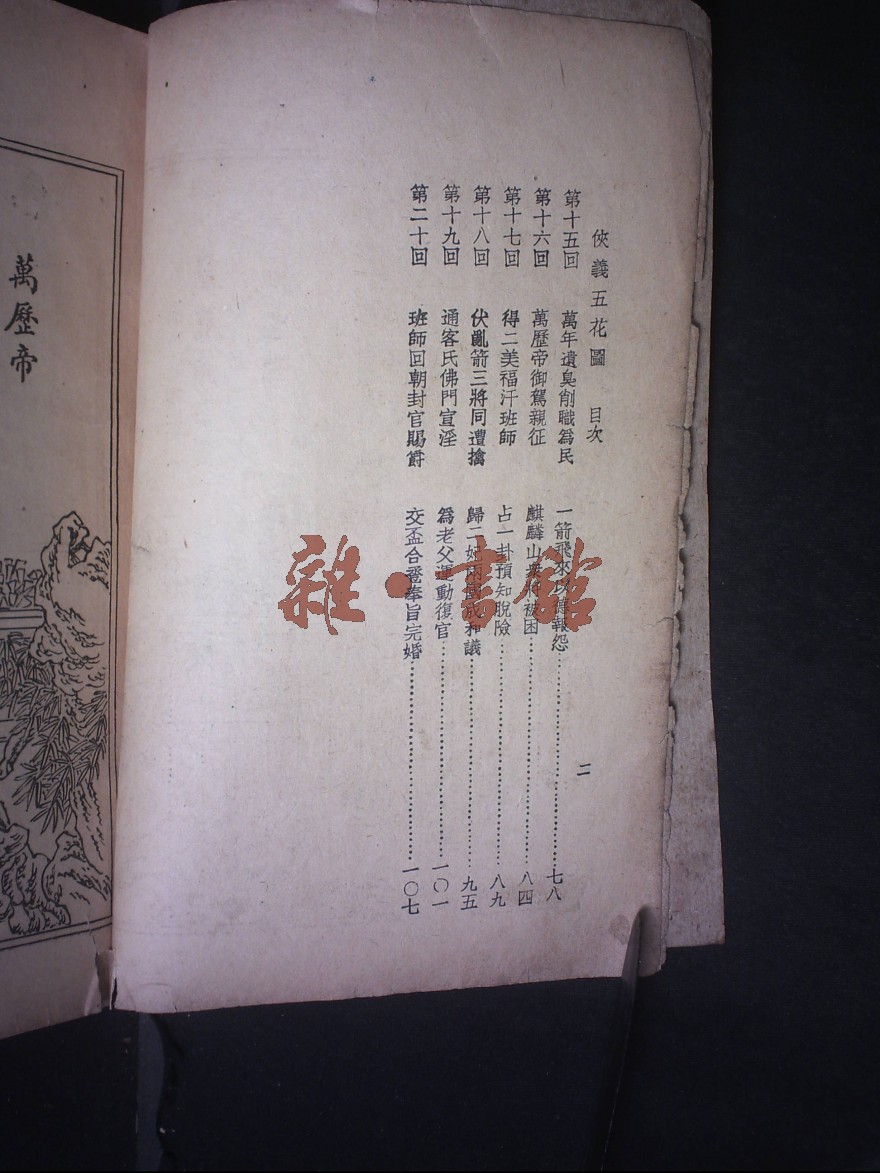 俠義五花圖 目次
二
第十五回 萬年遺臭削職為民 一箭飛來以德報怨 七八
第十六回 萬歷帝御駕親征 麒麟山衆將被困 八四
第十七回 得二美福汗班師 占一卦預知脫險 八九
第十八回 伏亂箭三將同遭擒 歸二妃兩國成和議 九五
第十九回 通客氏佛門宣淫 爲老父運動復官 一〇一
第二十回 班師回朝封官賜爵 交盃合卺奉旨完婚 一〇七
萬歷帝
雜·書館